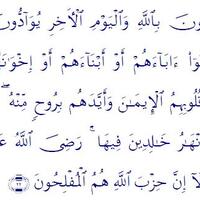 ونَ بِٱللَّهِ وَٱلْيَوْمِ ٱلْأَخِرِ يُوَآدُّونَ
وٓا۟ ءَابَآءَهُمْ أَوْ أَبْنَآءَهُمْ أَوْ إِخْوَٰنَ
قُلُوبِهِمُ ٱلْإِيمَـٰنَ وَأَيَّدَهُم بِرُوحٍ مِّنْهُ ۖ
نْهَـٰرُ خَـٰلِدِينَ فِيهَا ۚ رَضِىَ ٱللَّهُ عَ
لَآ إِنَّ حِزْبَ ٱللَّهِ هُمُ ٱلْمُفْلِحُونَ ٢٢